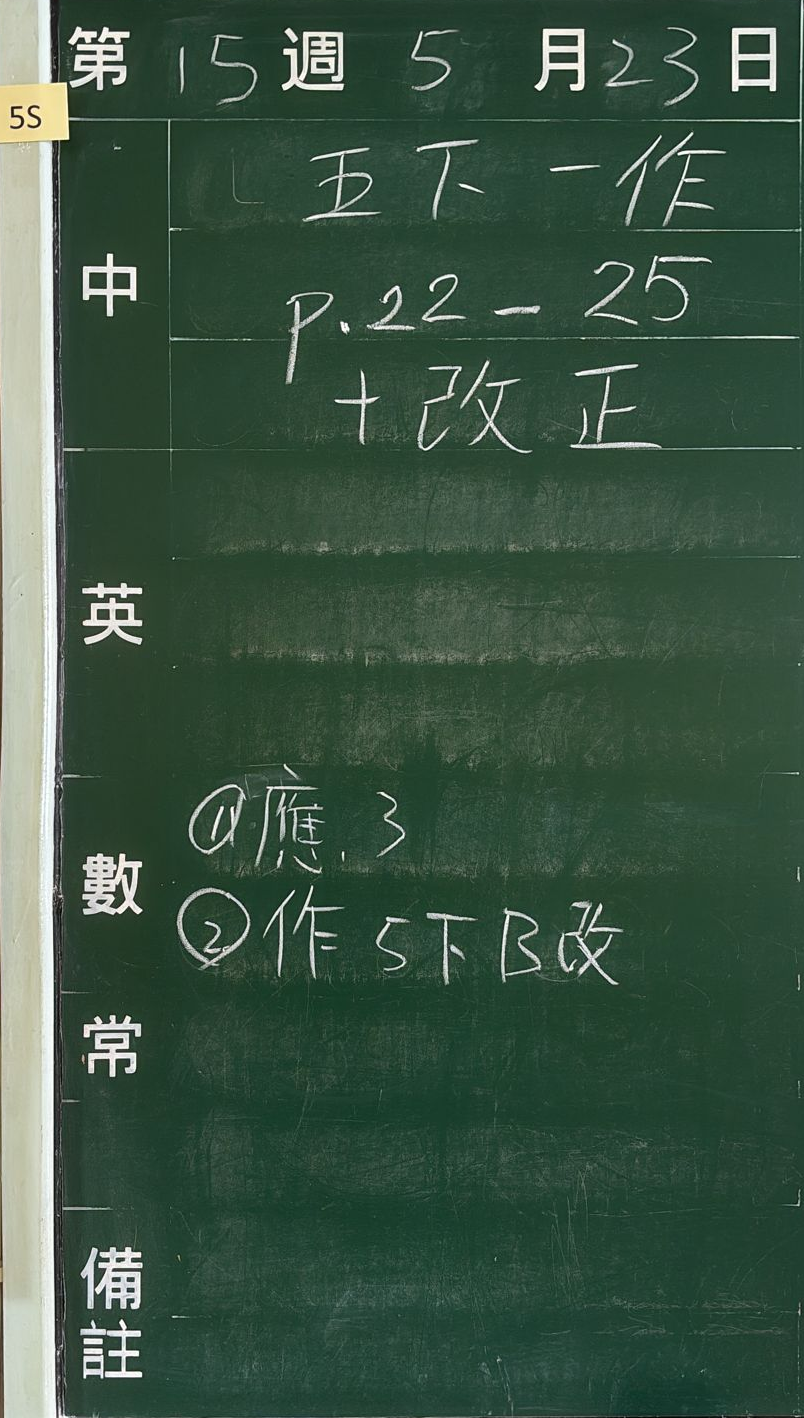 第 15 週 5 月 23 日
5S
中
五下一作
p.22 - 25
+ 改正
英
數
① 應.3
② 作 5下B改
常
備註